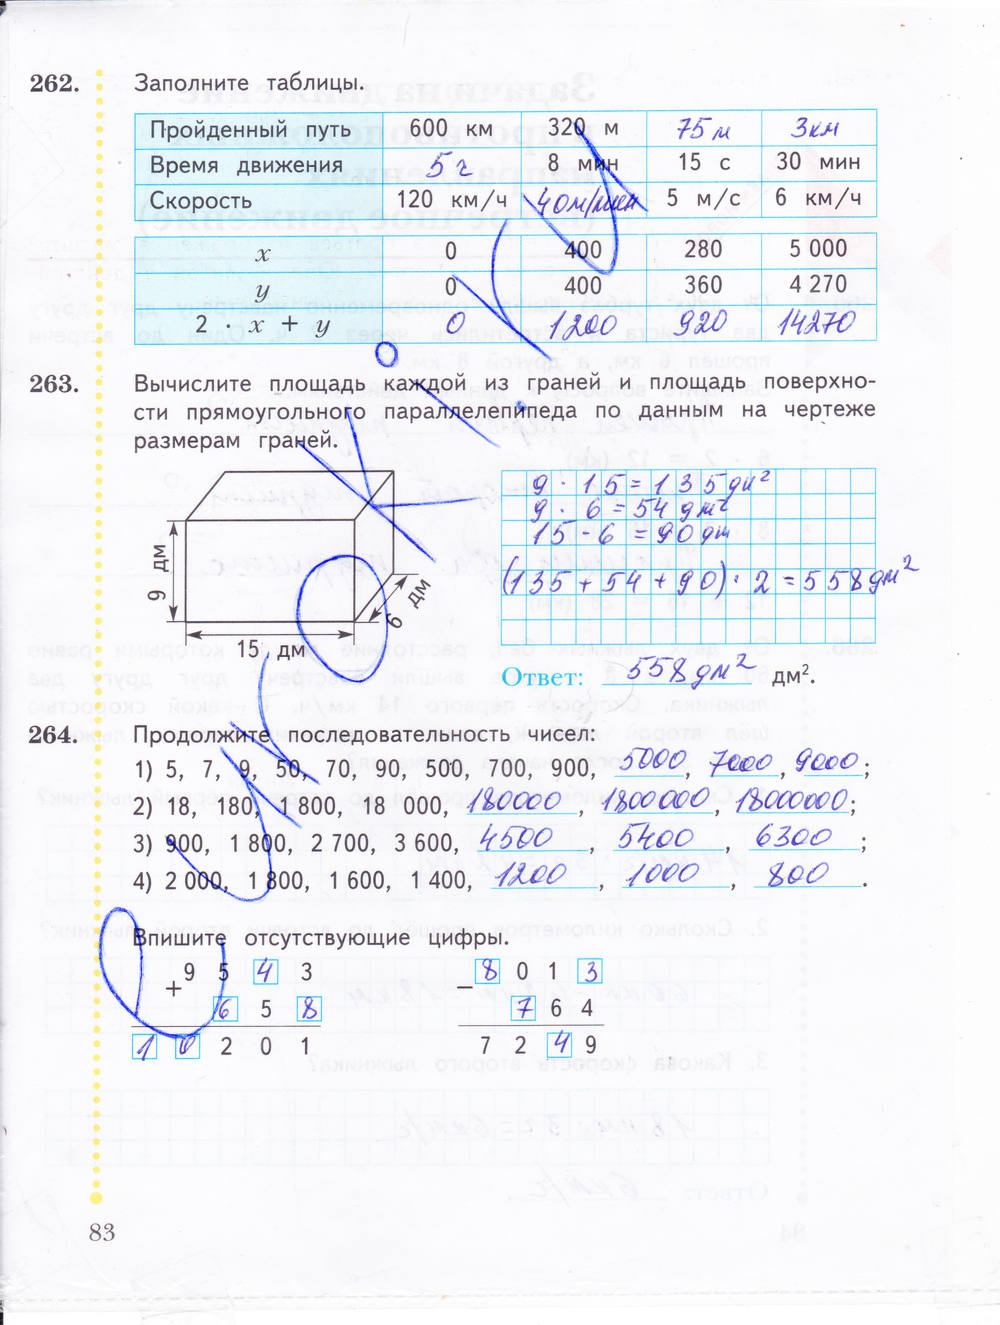 262. Заполните таблицы.
Пройденный путь 600 км 320 м 75 м 3 км
Время движения 5 ч 8 мин 15 с 30 мин
Скорость 120 км/ч 40 м/мин 5 м/с 6 км/ч
x 0 400 280 5 000
y 0 400 360 4 270
2 · x + y 0 1200 920 14270
263. Вычислите площадь каждой из граней и площадь поверхно-
сти прямоугольного параллелепипеда по данным на чертеже
размерам граней.
9 дм
15 дм
6 дм
9 · 15 = 135 дм²
9 · 6 = 54 дм²
15 · 6 = 90 дм
(135 + 54 + 90) · 2 = 558 дм²
Ответ: 558 дм² дм².
264. Продолжите последовательность чисел:
1) 5, 7, 9, 50, 70, 90, 500, 700, 900, 5000, 7000, 9000;
2) 18, 180, 1 800, 18 000, 180000, 1800000, 18000000;
3) 900, 1 800, 2 700, 3 600, 4500, 5400, 6300;
4) 2 000, 1 800, 1 600, 1 400, 1200, 1000, 800.
Впишите отсутствующие цифры.
+ 9 5 4 3
6 5 8
1 0 2 0 1
− 8 0 1 3
7 6 4
7 2 4 9
83